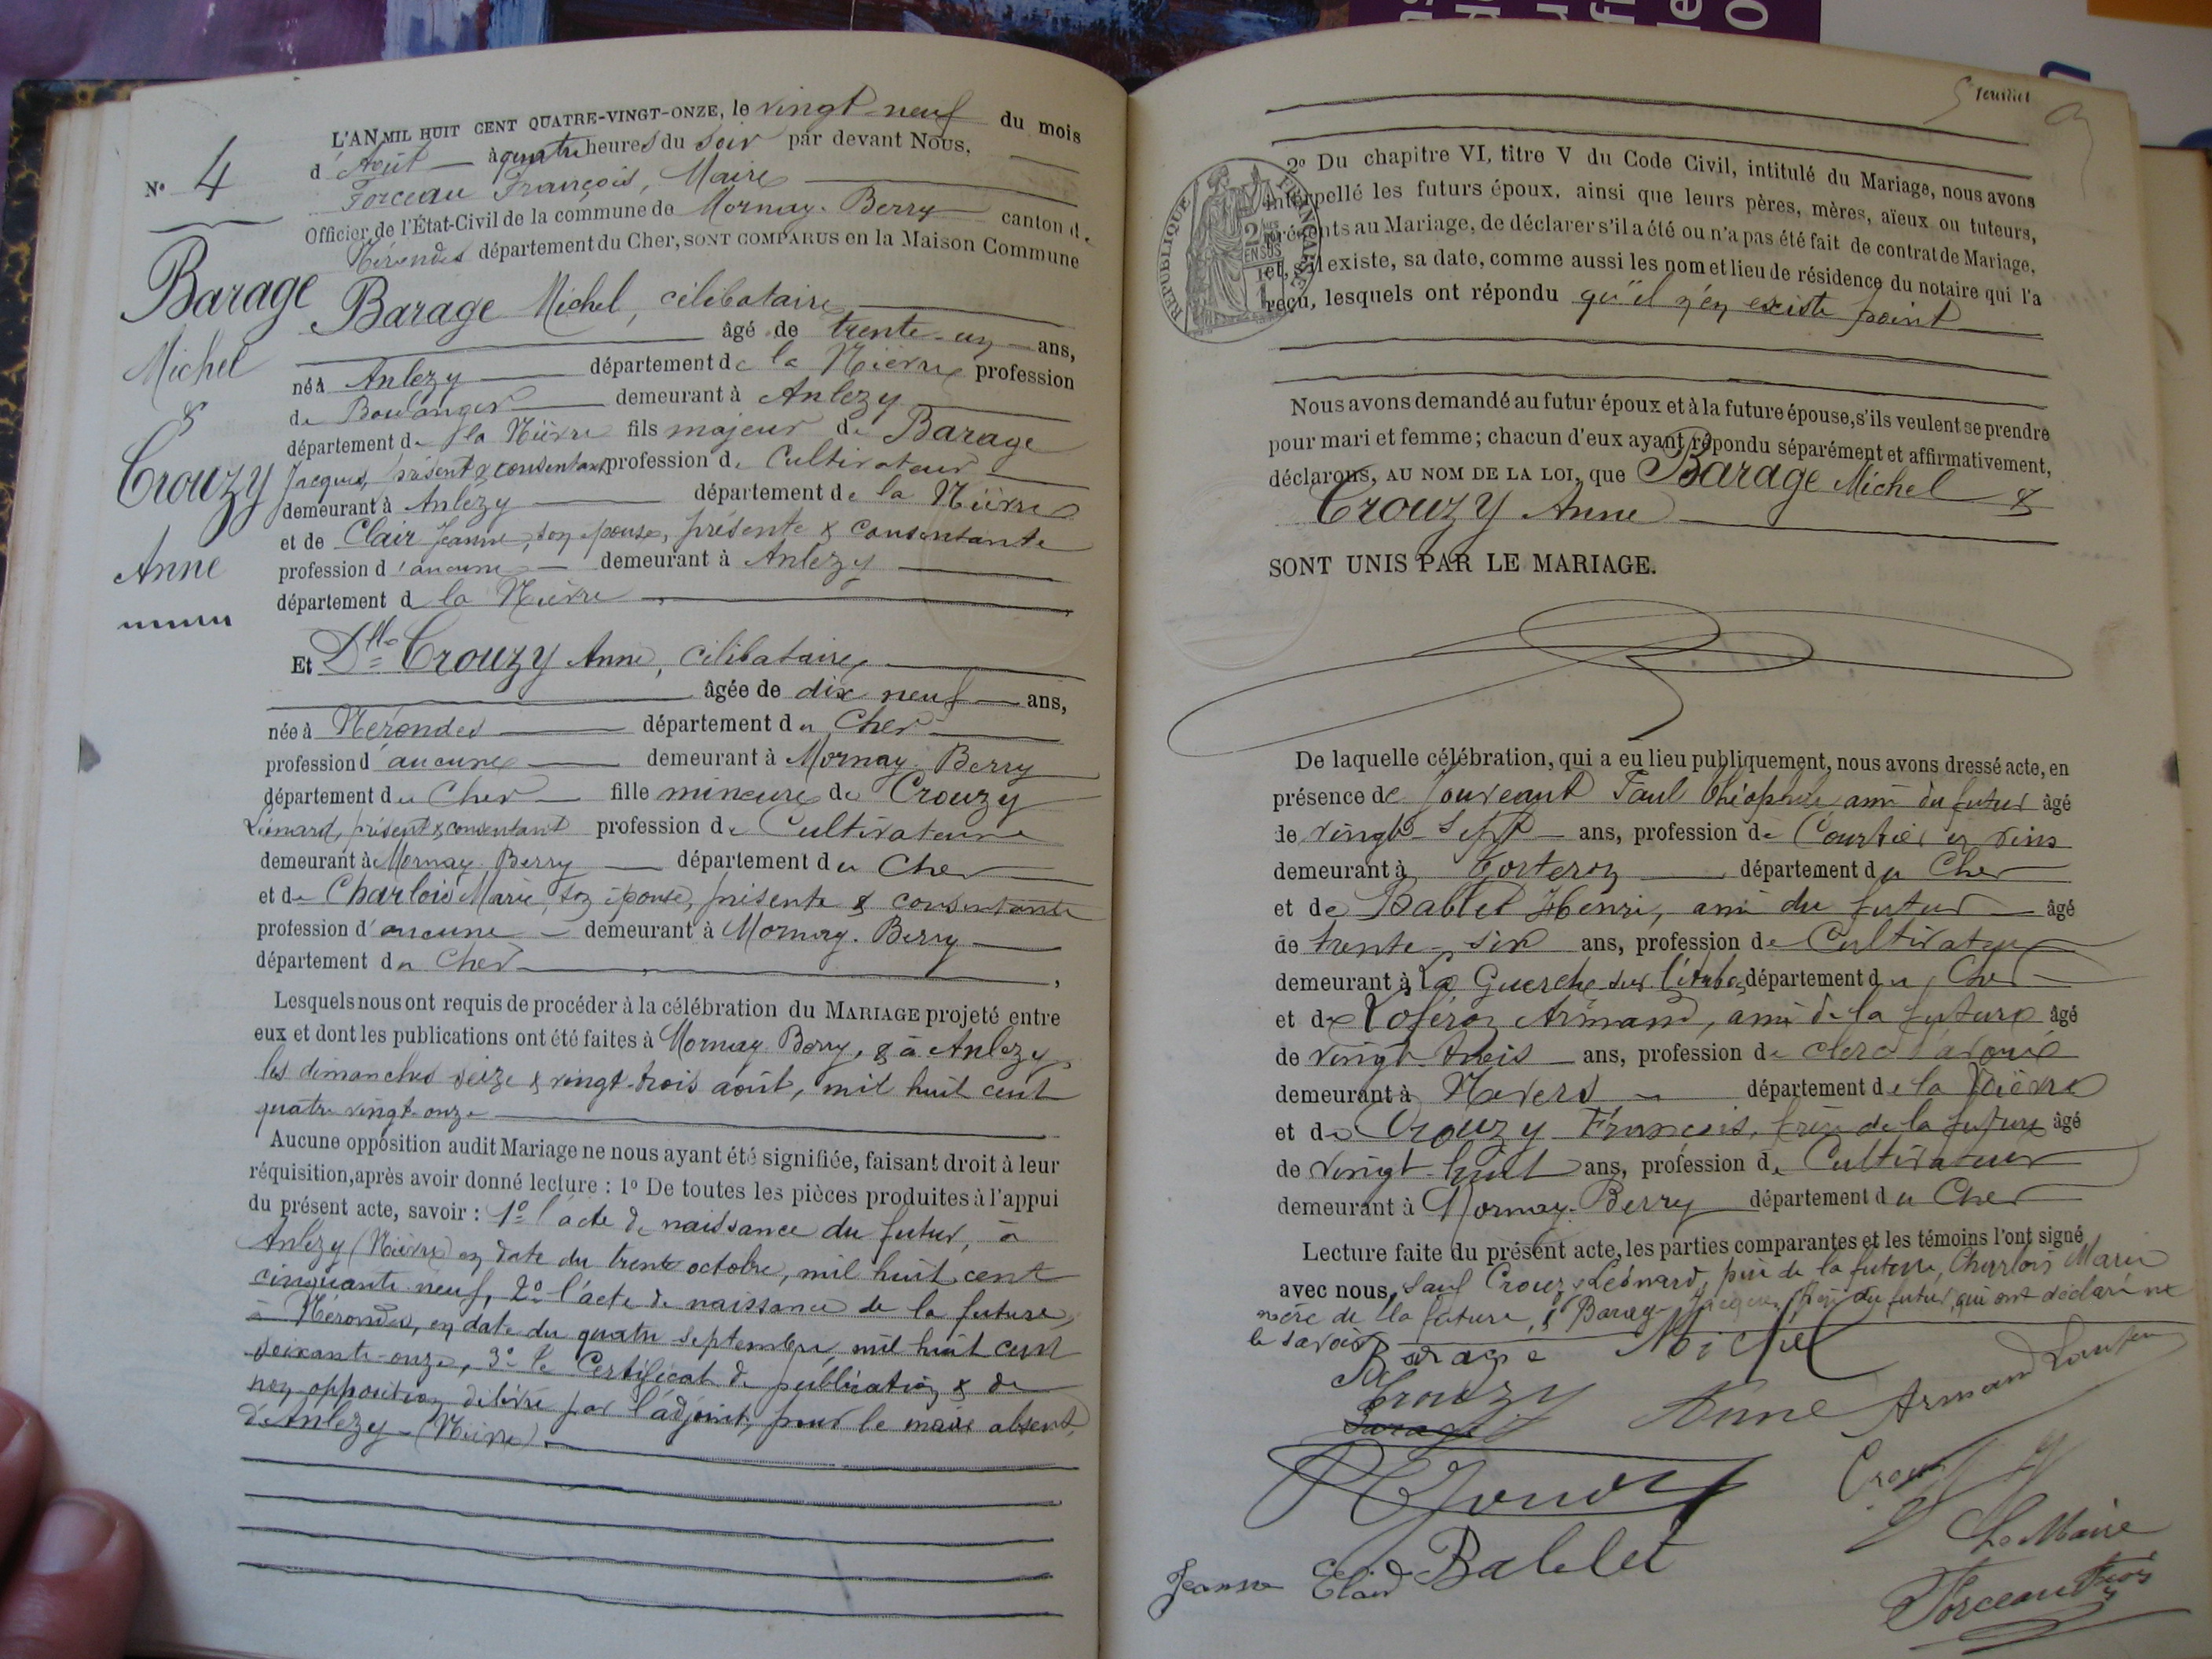 N° 4
Barage
Michel
&
Crouzy
Anne
L'AN MIL HUIT CENT QUATRE-VINGT-ONZE, le vingt-neuf du mois
d'Août à quatre heures du soir par devant Nous,
Forceau François, Maire
Officier de l'État-Civil de la commune de Mornay-Berry canton de
Nérondes département du Cher, SONT COMPARUS en la Maison Commune
Barage Michel, célibataire
âgé de trente-un ans,
né à Anlezy département de la Nièvre profession
de Boulanger demeurant à Anlezy
département de la Nièvre fils majeur de Barage
Jacques, présent & consentant profession de Cultivateur
demeurant à Anlezy département de la Nièvre
et de Clair Jeanne, son épouse, présente & consentante
profession d'aucune demeurant à Anlezy
département d la Nièvre
Et Dlle Crouzy Anne, célibataire,
âgée de dix neuf ans,
née à Nérondes département du Cher
profession d'aucune demeurant à Mornay-Berry
département du Cher fille mineure de Crouzy
Léonard, présent & consentant profession de Cultivateur
demeurant à Mornay-Berry département du Cher
et de Charlois Marie, son épouse, présente & consentante
profession d'aucune demeurant à Mornay-Berry
département du Cher
Lesquels nous ont requis de procéder à la célébration du MARIAGE projeté entre
eux et dont les publications ont été faites à Mornay-Berry, & à Anlezy
les dimanches seize & vingt-trois août, mil huit cent
quatre vingt-onze
Aucune opposition audit Mariage ne nous ayant été signifiée, faisant droit à leur
réquisition, après avoir donné lecture : 1° De toutes les pièces produites à l'appui
du présent acte, savoir : 1° l'acte de naissance du futur, à
Anlezy (Nièvre) en date du trente octobre, mil huit cent
cinquante neuf, 2° l'acte de naissance de la future,
à Nérondes, en date du quatre septembre mil huit cent
soixante-onze, 3° le Certificat de publication & de
non opposition délivré par l'adjoint, pour le maire absent,
d'Anlezy (Nièvre)
5 feuillet
RÉPUBLIQUE FRANÇAISE
2° Du chapitre VI, titre V du Code Civil, intitulé du Mariage, nous avons
interpellé les futurs époux, ainsi que leurs pères, mères, aïeux ou tuteurs,
présents au Mariage, de déclarer s'il a été ou n'a pas été fait de contrat de Mariage,
et, s'il existe, sa date, comme aussi les nom et lieu de résidence du notaire qui l'a
reçu, lesquels ont répondu qu'il n'en existe point
Nous avons demandé au futur époux et à la future épouse, s'ils veulent se prendre
pour mari et femme ; chacun d'eux ayant répondu séparément et affirmativement,
déclarons, AU NOM DE LA LOI, que Barage Michel &
Crouzy Anne
SONT UNIS PAR LE MARIAGE.
De laquelle célébration, qui a eu lieu publiquement, nous avons dressé acte, en
présence de Paul Théophile ami du futur âgé
de vingt-sept ans, profession de Courtier en vins
demeurant à Torteron département du Cher
et de Bablet Henri, ami du futur âgé
de trente-six ans, profession de Cultivateur
demeurant à La Guerche-sur l'Aubois département du Cher
et de Armand, ami de la future âgé
de vingt-trois ans, profession de clerc d'avoué
demeurant à Nevers département de la Nièvre
et de Crouzy François, frère de la future âgé
de vingt-huit ans, profession de Cultivateur
demeurant à Mornay-Berry département du Cher
Lecture faite du présent acte, les parties comparantes et les témoins l'ont signé
avec nous, sauf Crouzy Léonard, père de la future, Charlois Marie
mère de la future, & Barage Jacques, père du futur, qui ont déclaré ne
le savoir
Barage Michel
Crouzy Anne
Armand
Crouzy
Jeanne Clair
Bablet
Le Maire
Forceau Fçois